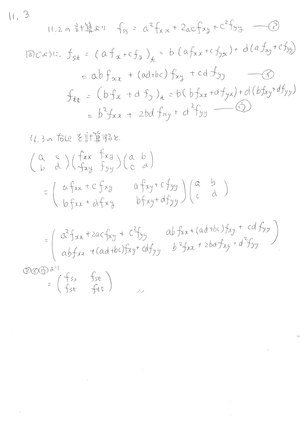 11.3
11.2の計算より f_ss = a²f_xx + 2acf_xy + c²f_yy ―㋐
同じように f_st = (af_x + cf_y)_t = b(af_xx + cf_yx) + d(af_xy + cf_yy)
= abf_xx + (ad+bc)f_xy + cdf_yy ―㋑
f_tt = (bf_x + df_y)_t = b(bf_xx + df_yx) + d(bf_xy + df_yy)
= b²f_xx + 2bdf_xy + d²f_yy ―㋒
11.3の右辺を計算すると
(a c; b d)(f_xx f_xy; f_xy f_yy)(a b; c d)
= (af_xx + cf_xy af_xy + cf_yy; bf_xx + df_xy bf_xy + df_yy)(a b; c d)
= (a²f_xx + 2acf_xy + c²f_yy abf_xx + (ad+bc)f_xy + cdf_yy; abf_xx + (ad+bc)f_xy + cdf_yy b²f_xx + 2bdf_xy + d²f_yy)
㋐㋑㋒より
= (f_ss f_st; f_st f_tt) //